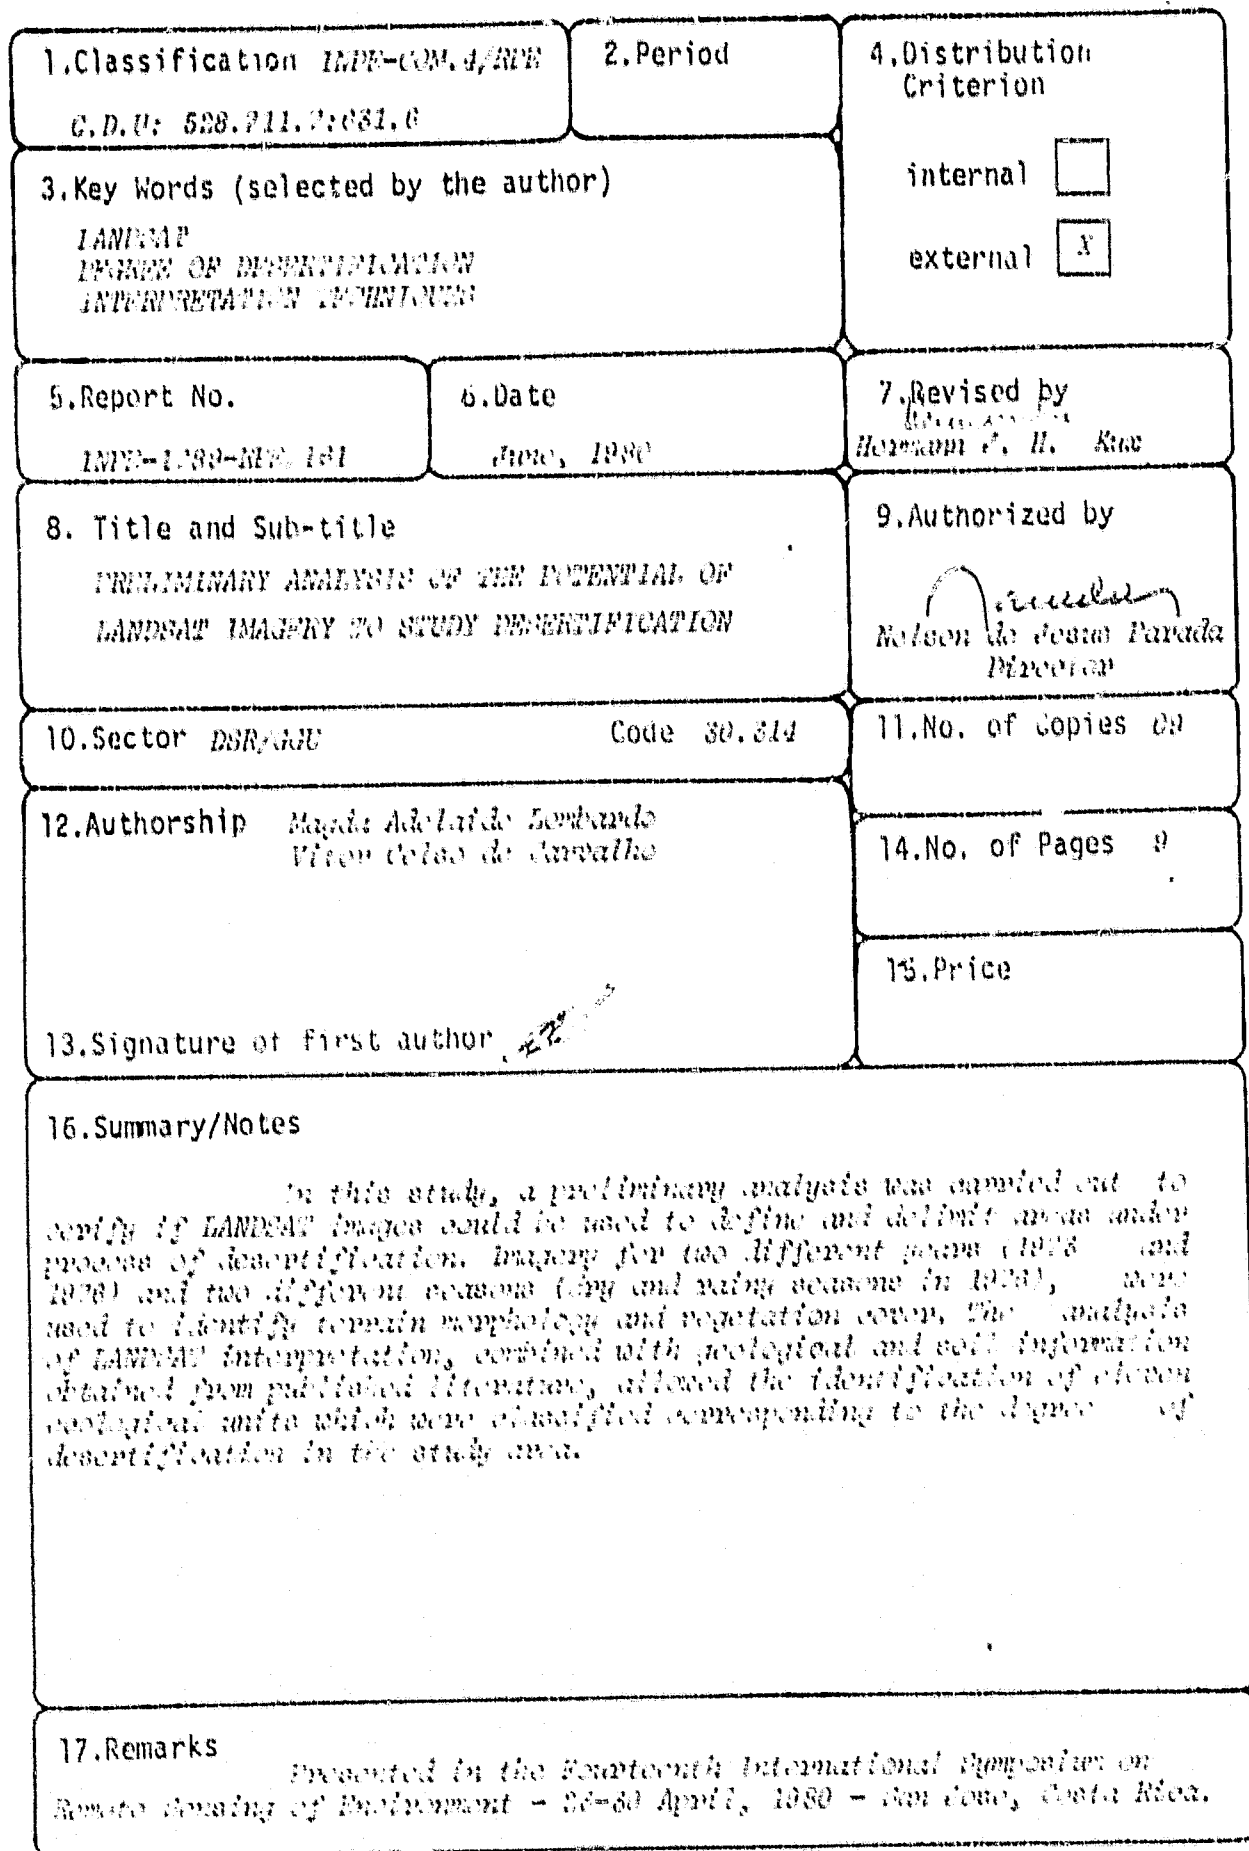 1.Classification INPE-COM.4/RPE
C.D.U: 528.711.7:681.6
2.Period
4.Distribution
Criterion
internal
external X
3.Key Words (selected by the author)
LANDSAT
DEGREE OF DESERTIFICATION
INTERPRETATION TECHNIQUES
5.Report No.
6.Date
June, 1980
7.Revised by
Hermann J. H. Kux
8. Title and Sub-title
PRELIMINARY ANALYSIS OF THE POTENTIAL OF
LANDSAT IMAGERY TO STUDY DESERTIFICATION
9.Authorized by
Nelson de Jesus Parada
Director
10.Sector Code 30.314
11.No. of Copies 09
12.Authorship Magda Adelaide Lombardo
Vitor Celso de Carvalho
14.No. of Pages 9
15.Price
13.Signature of first author
16.Summary/Notes
In this study, a preliminary analysis was carried out to
verify if LANDSAT images could be used to define and delimit areas under
process of desertification. Imagery for two different years (and
and two different seasons (dry and rainy seasons in were
used to identify terrain morphology and vegetation cover. The analysis
of LANDSAT interpretation, combined with geological and soil information
obtained from published literature, allowed the identification of eleven
ecological units which were classified corresponding to the degree of
desertification in the study area.
17.Remarks
Presented in the Fourteenth International Symposium on
Remote Sensing of Environment - April, 1980 - San Jose, Costa Rica.